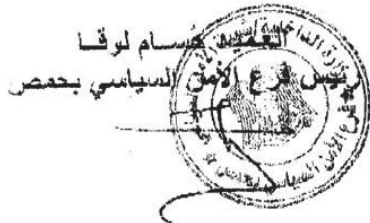 العميد حسام لوقا
رئيس فرع الأمن السياسي بحمص